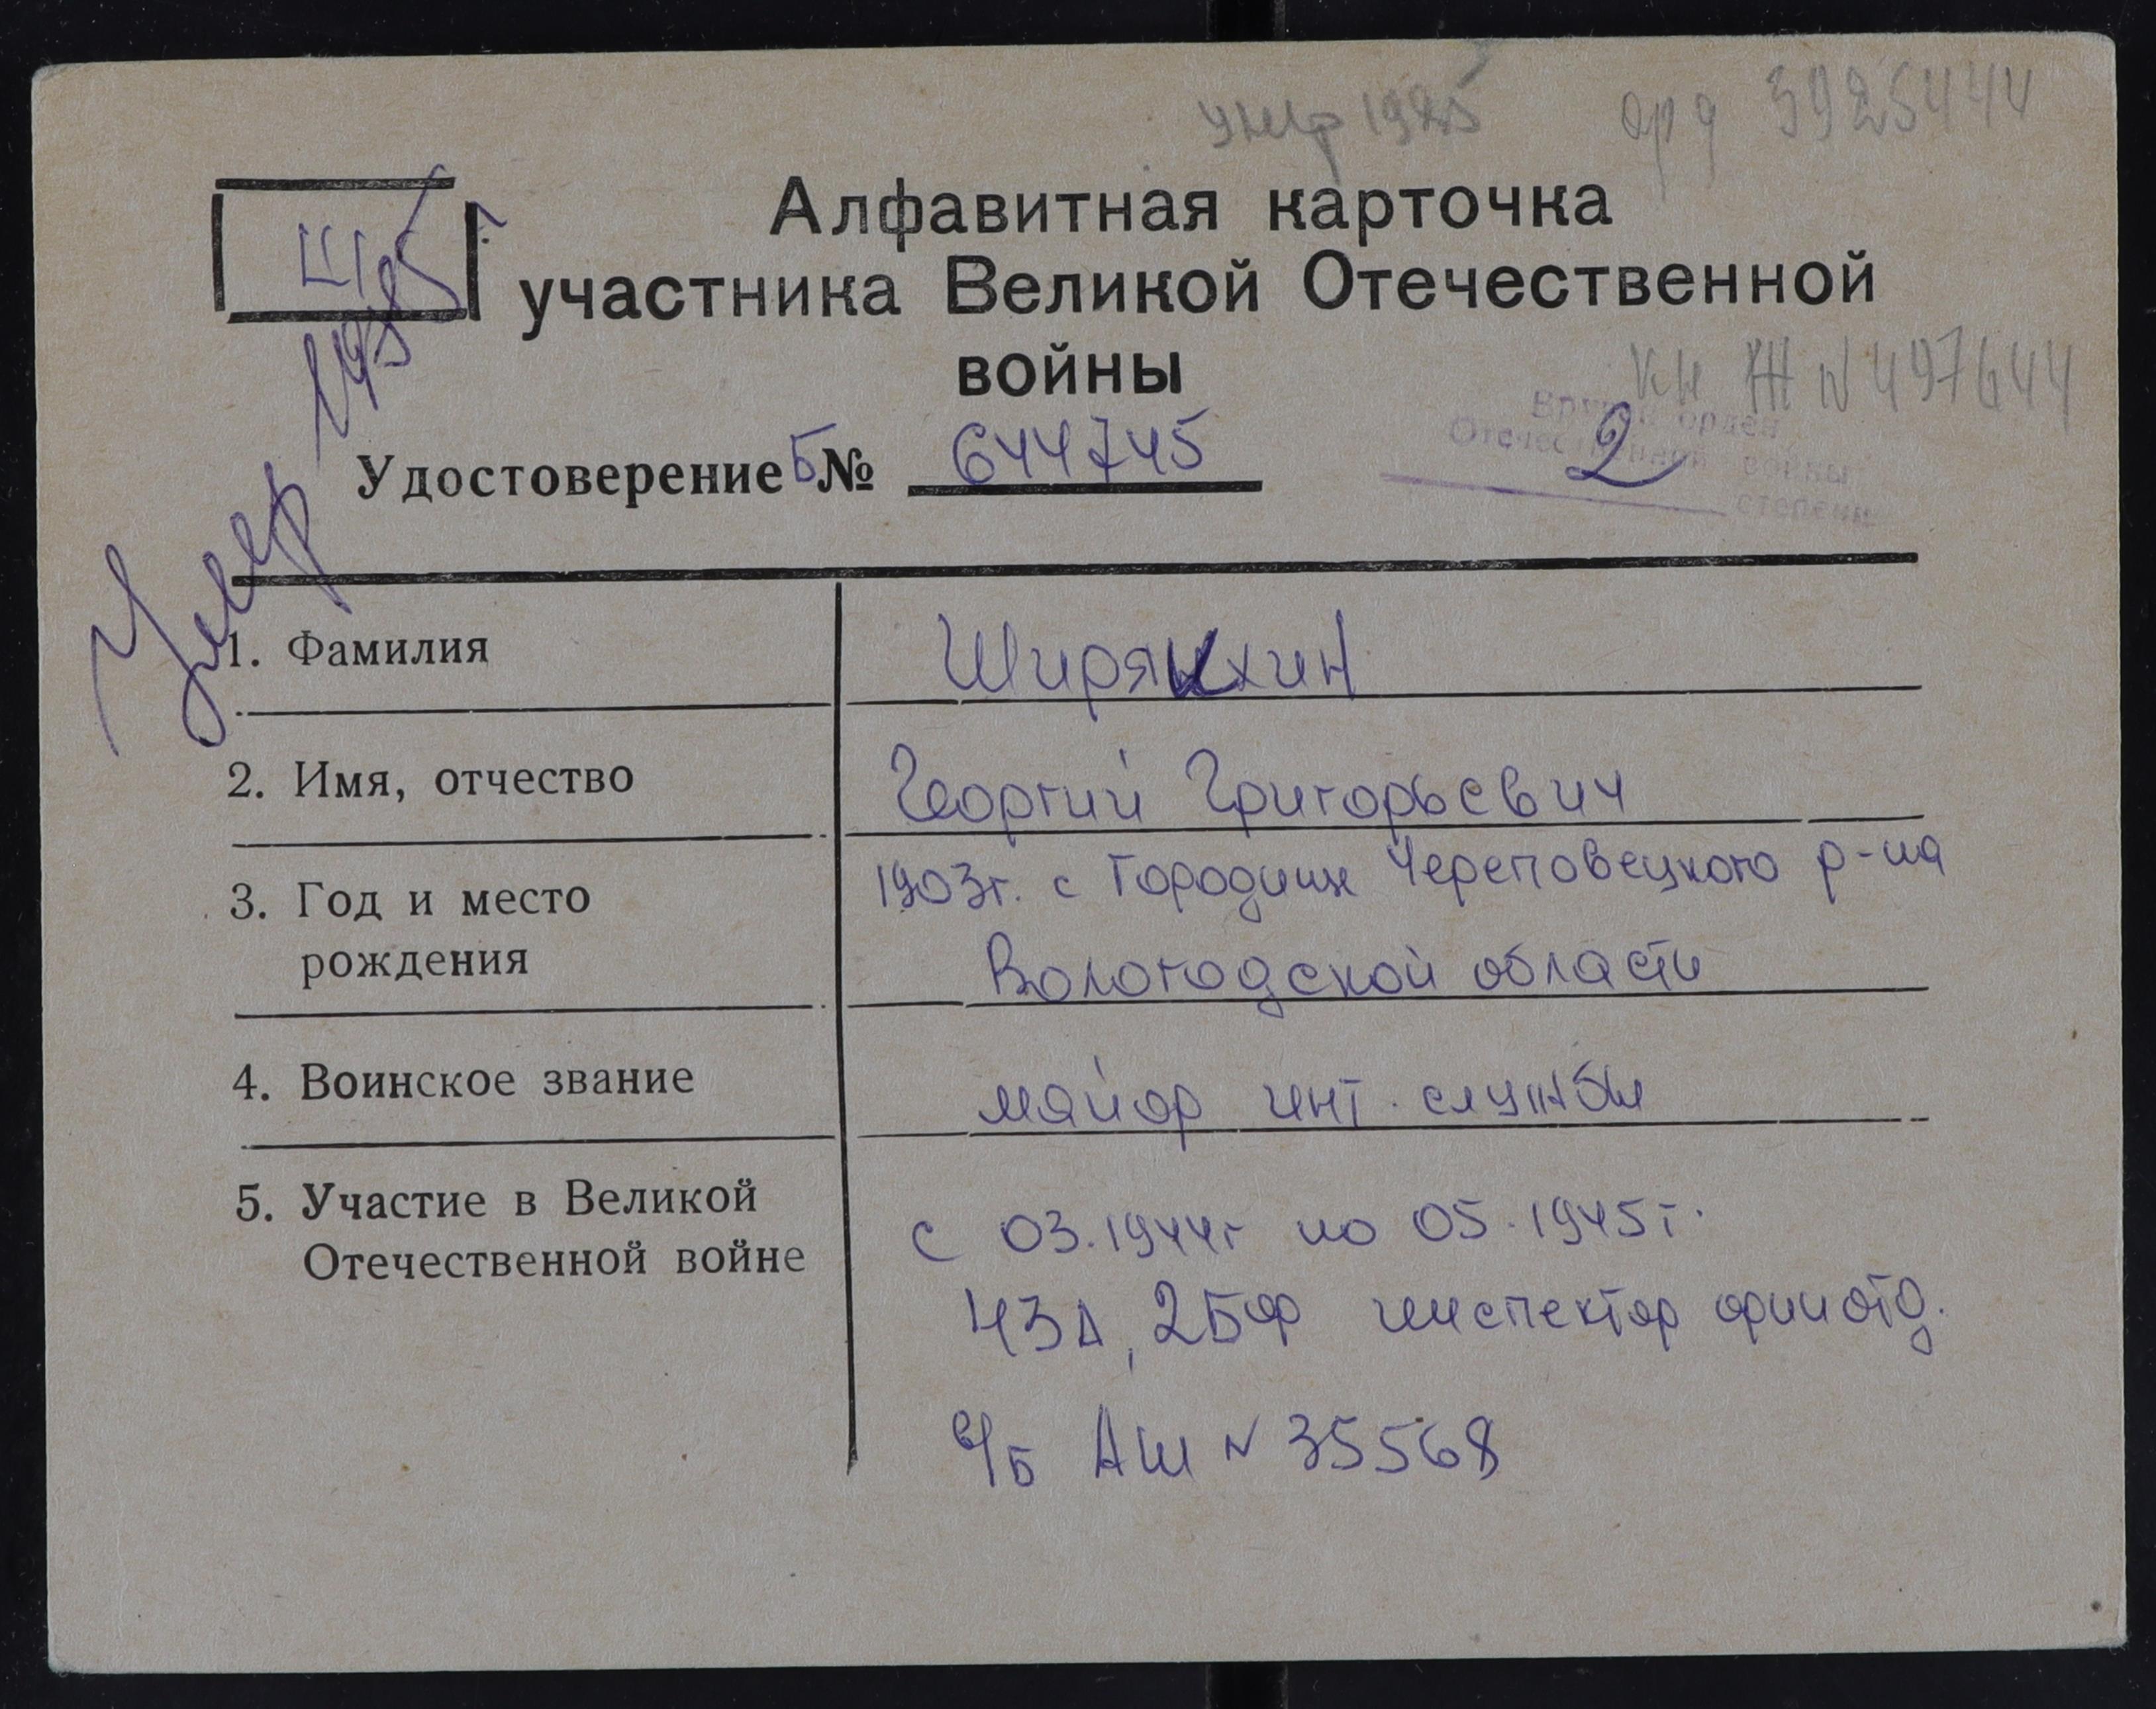 умр 1985 орд 3925444
Ш
Алфавитная карточка
участника Великой Отечественной
войны
кн Ж N 497644
Удостоверение Б№ 644745
Вручен орден
Отечественной войны
2 степени
Умер 1985г
1. Фамилия Ширяихин
2. Имя, отчество Георгий Григорьевич
3. Год и место 1903г. с Городище Череповецкого р-на
рождения Вологодской области
4. Воинское звание майор инт. службы
5. Участие в Великой с 03.1944г по 05.1945г.
Отечественной войне 43А, 2БФ инспектор фин отд.
в/б АШ N 35568